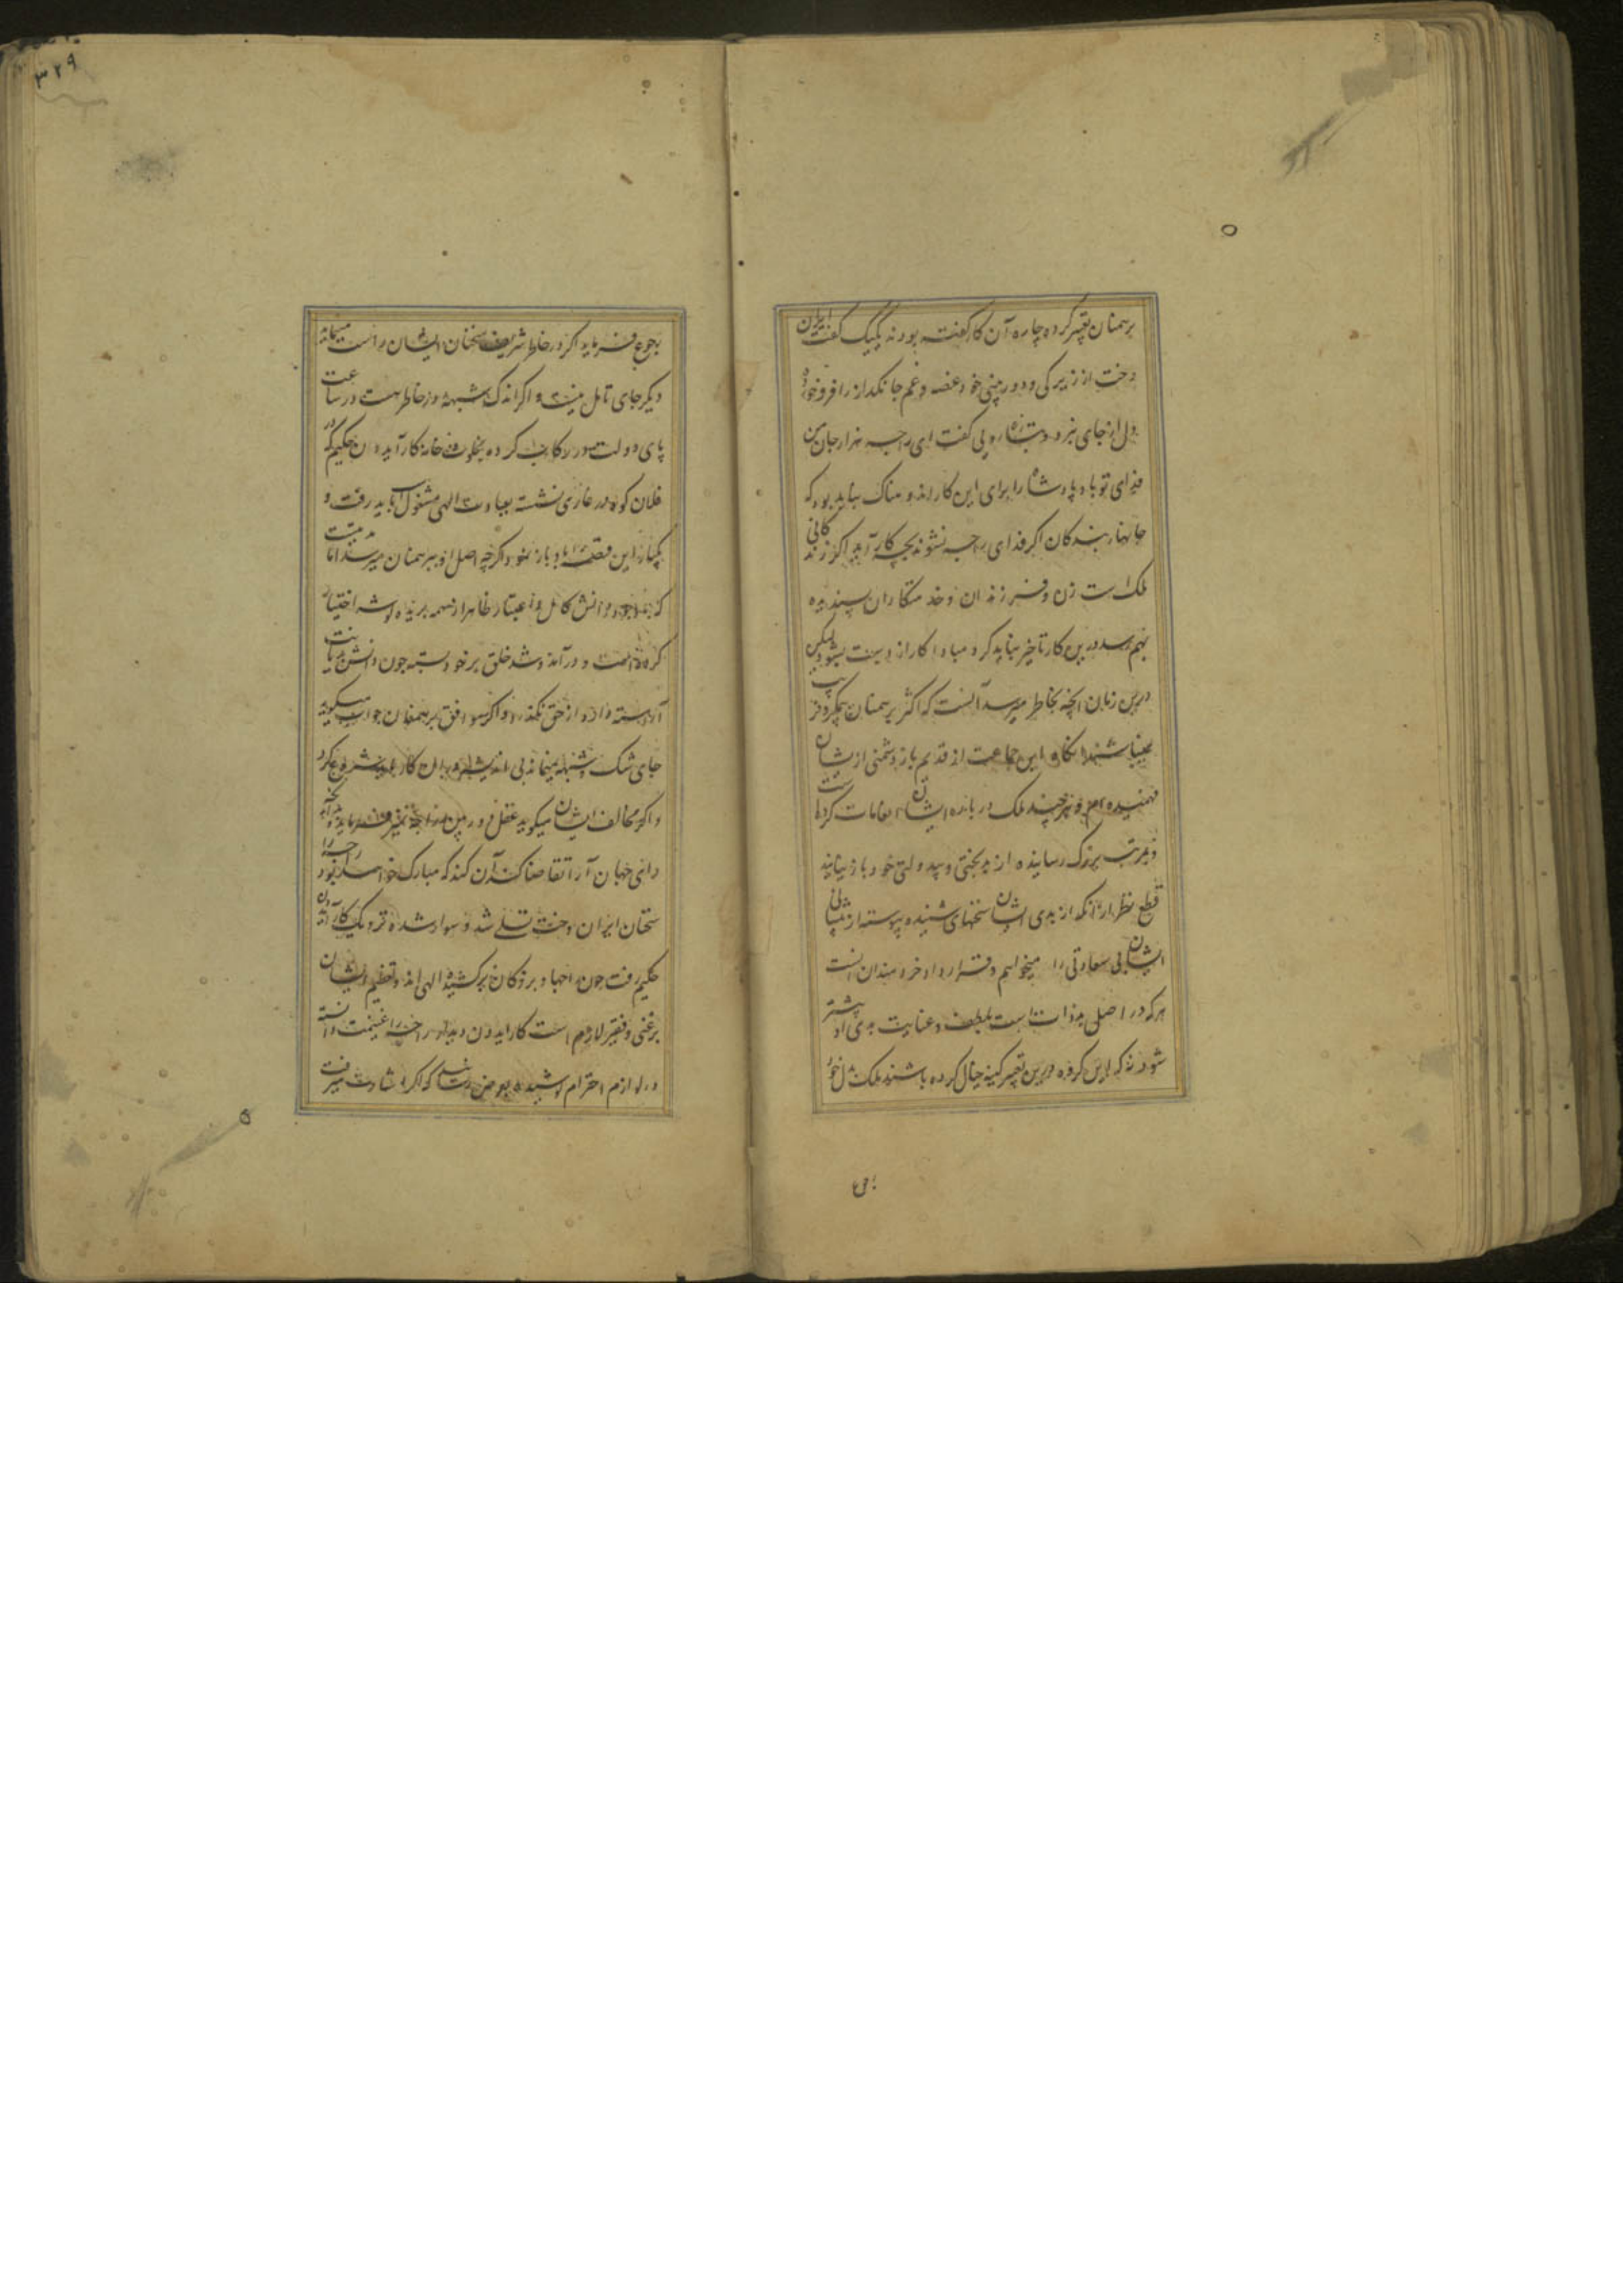 برهمنان تعبیر کرده چاره آن کار گفته بودند یکیک گفت ایران
دخت از زیرکی و دوربینی خود غصه و غم جانگداز را فروخورد
دل از جای نبرد و گفت ای راجه هزار جان من
فدای تو باد پادشاه را برای این کار اندوهناک نباید بود که
جانهاء بندکان اکر فدای راجه نشوند بچه کار آید اکر زندکانی
ملک است زن و فرزندان و خدمتکاران پسندیده
بهم رسد درین کار تاخیر نباید کرد مبادا کار از دست بشود لیکن
درین زمان انچه بخاطر میرسد آنست که اکثر برهمنان بمکر و فریب
این جماعت از قدیم باز دشمنی ازیشان
فهمیده ام و هرچند ملک درباره ایشان انعامات کرده است
و بمرتب بزرک رسانیده از بدبختی و بیدولتی خود باز نیایند
قطع نظر از آنکه از بدی ایشان سخنهای شنیده پیوسته از پیشانی
ایشان بی سعادتی را میخوانم و قرارداد خردمندان است
هرکه در اصل بدذات است بلطف و عنایت بدی او بیشتر
شود نه که این کروه درین تعبیر کینه خیال کرده باشند ملک بدل خود
رجوع فرماید اکر در خاطر شریف سخنان ایشان راست مینماید
دیکر جای تامل نیست و اکر اندک شبهه در خاطر هست در ساعت
پای دولت در رکاب کرده بخلوت خانه کارایدون حکیم که در
فلان کوه در غاری نشسته بعبادت الهی مشغول است باید رفت و
یکبار این قصه را باو باز نمود اکرچه اصل او ببرهمنان میرسد اما مدتیست
که دانش کامل و اعتبار ظاهر از همه بریده کوشه اختیار
کرده است و درآمد و شد خلق بر خود بسته چون دانش و دیانت
آراسته دارد از حق نکذرد و اکر موافق برهمنان جواب میکوید
جای شک و شبهه نمیماند بی اندیشه در آن کار باید شروع کرد
و اکر مخالف ایشان میکوید عقل دوربین راجه تمیز فرماید و آنچه
رای جهان آرا تقاضا کند آن کند که مبارک خواهد بود راجه را
سخنان ایران دخت تسلی شد و سوار شده نزدیک کارایدون
حکیم رفت چون احیا و بزرکان برکشیده الهی اند و تعظیم ایشان
بر غنی و فقیر لازم است کارایدون دیدار راجه را غنیمت دانسته
در لوازم احترام کوشیده بعرض رسانید که اکر اشارت میرفت
۳۲۹